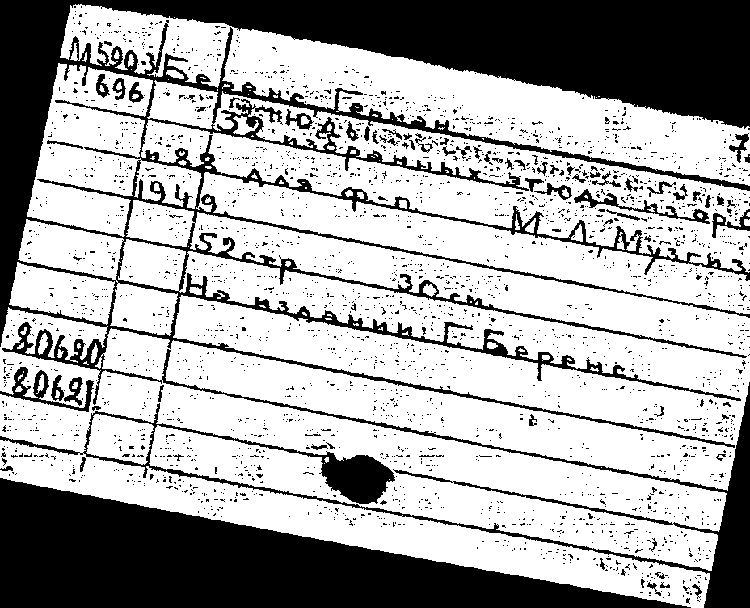 М 590-3 Беренс, Герман. 7
696 Этюды
32 избранных этюда из ор.
и 88 для ф-п. М.-Л., Музгиз,
1949.
52 стр 30 см.
На издании: Г. Беренс.
80620
80621